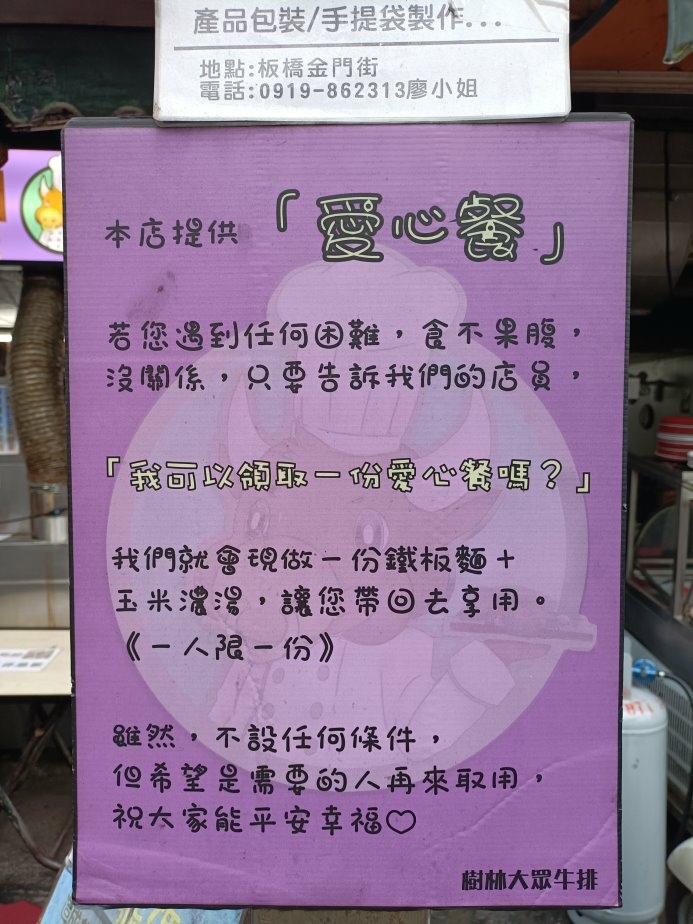 產品包裝/手提袋製作...
地點:板橋金門街
電話:0919-862313廖小姐
本店提供「愛心餐」
若您遇到任何困難，食不果腹，
沒關係，只要告訴我們的店員，
「我可以領取一份愛心餐嗎？」
我們就會現做一份鐵板麵＋
玉米濃湯，讓您帶回去享用。
《一人限一份》
雖然，不設任何條件，
但希望是需要的人再來取用，
祝大家能平安幸福♡
樹林大眾牛排